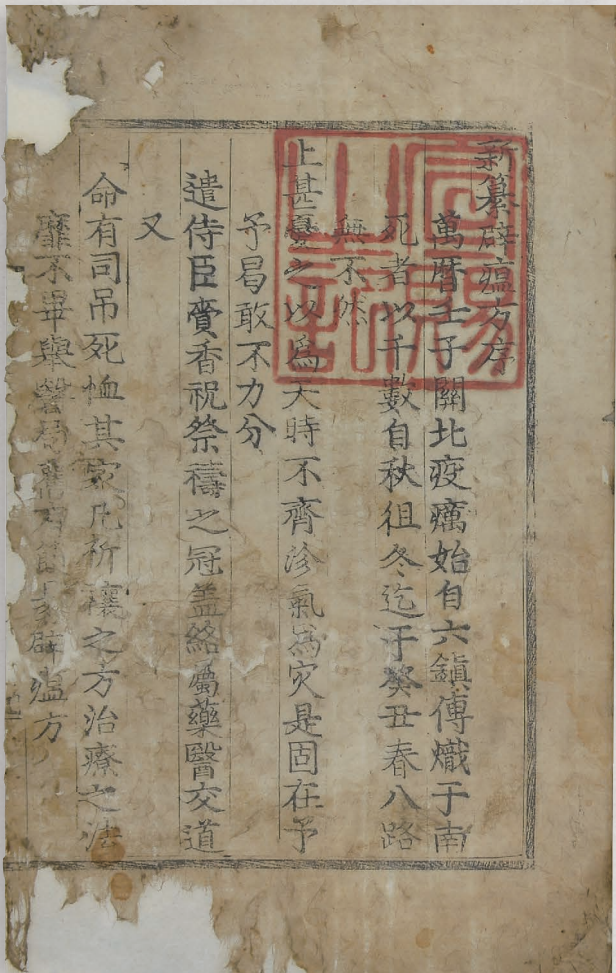 新纂辟瘟方序
萬曆壬子關北疫癘始自六鎭傳熾于南
死者以千數自秋徂冬迄于癸丑春八路
無不然
上甚憂之以爲天時不齊沴氣爲灾是固在予
予曷敢不力分
遣侍臣賫香祝祭禱之冠盖絡屬藥醫交道
又
命有司吊死恤其家凡祈禳之方治療之法
靡不畢擧醫 辟瘟方